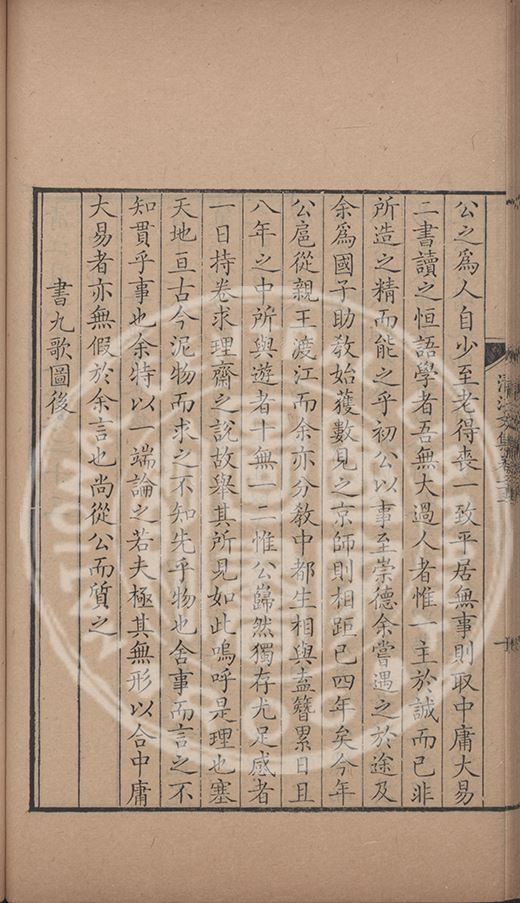 公之爲人自少至老得喪一致平居無事則取中庸大易
二書讀之恒語學者吾無大過人者惟一主於誠而已非
所造之精而能之乎初公以事至崇德余嘗遇之於途及
余爲國子助敎始獲數見之京師則相距已四年矣今年
公扈從親王渡江而余亦分敎中都生相與盍簪累日且
八年之中所與遊者十無一二惟公巋然獨存尤足感者
一日持卷求理齋之說故舉其所見如此嗚呼是理也塞
天地亘古今泥物而求之不知先乎物也舍事而言之不
知貫乎事也余特以一端論之若夫極其無形以合中庸
大易者亦無假於余言也尚從公而質之
書九歌圖後